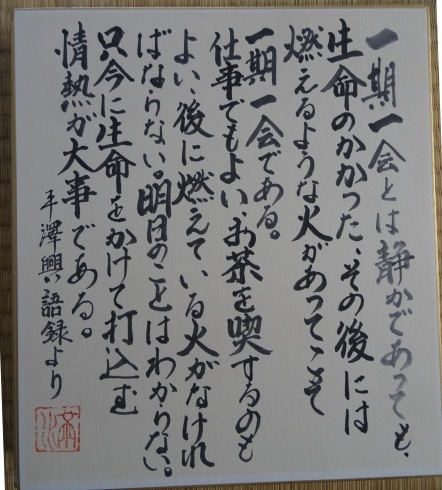 一期一会とは静かであっても、
生命のかかった、その後には
燃えるような火があってこそ
一期一会である。
仕事でもよい、お茶を喫するのも
よい、後に燃えている火がなけれ
ばならない。明日のことはわからない。
只今に生命をかけて打込む
情熱が大事である。
平澤興語録より